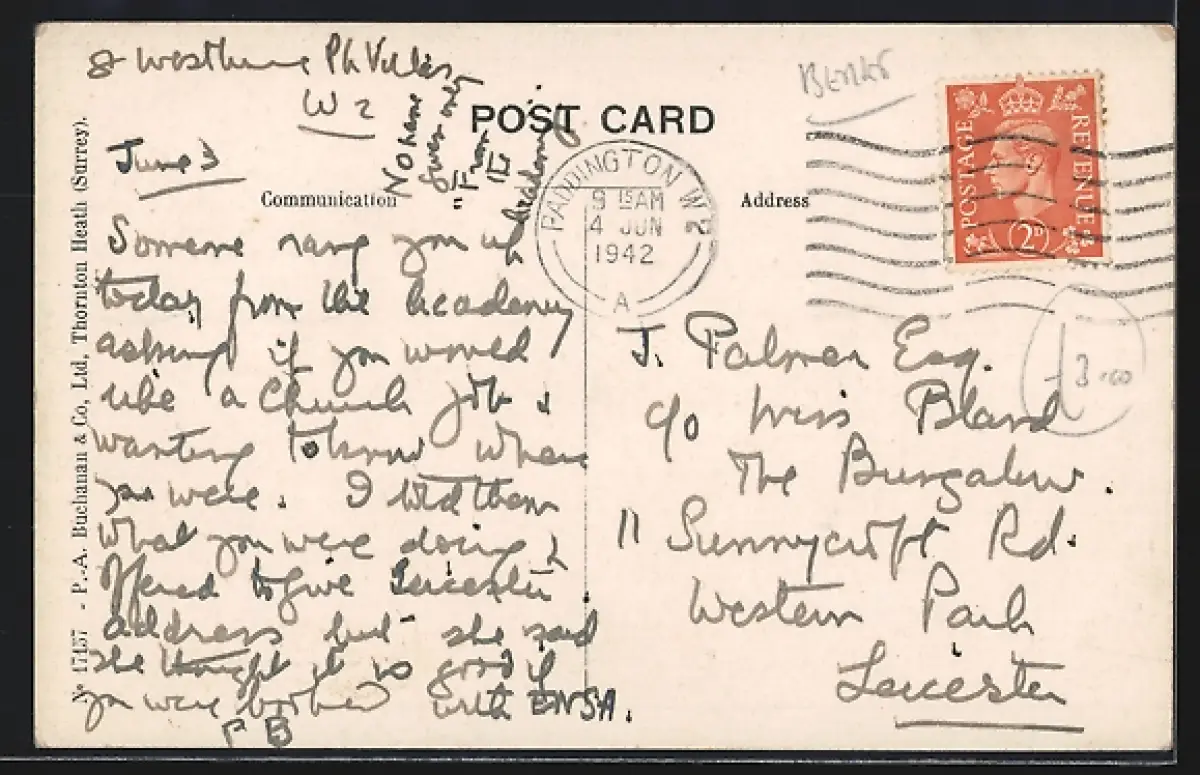 8 Westbourne Pk Villas
W 2
June 3
No name
given only
"From
the
Academy
POST CARD
Communication
Address
BERKS
PADDINGTON W2
9 15 AM
4 JUN
1942
A
POSTAGE
REVENUE
2D
Someone rang you up
today from the Academy
asking if you would
like a Church job &
wanting to know where
you were. I told them
what you were doing &
offered to give Leicester
address but she said
she thought it no good if
you were booked with ENSA.
P B
J. Palmer Esq.
c/o Miss Bland
The Bungalow.
11 Sunnycroft Rd.
Western Park
Leicester
3.00
No 17157 - P. A. Buchanan & Co, Ltd, Thornton Heath (Surrey).